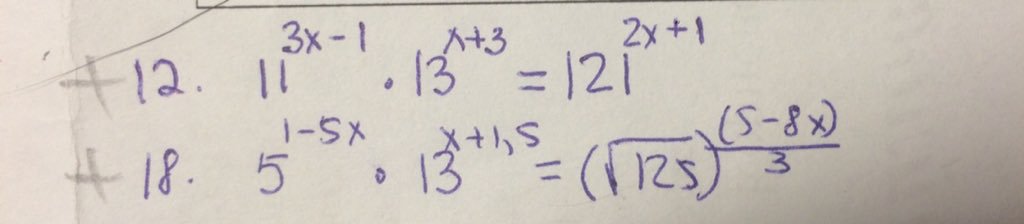 + 12. 11^(3x-1) · 13^(x+3) = 121^(2x+1)
+ 18. 5^(1-5x) · 13^(x+1,5) = (√125)^((5-8x)/3)